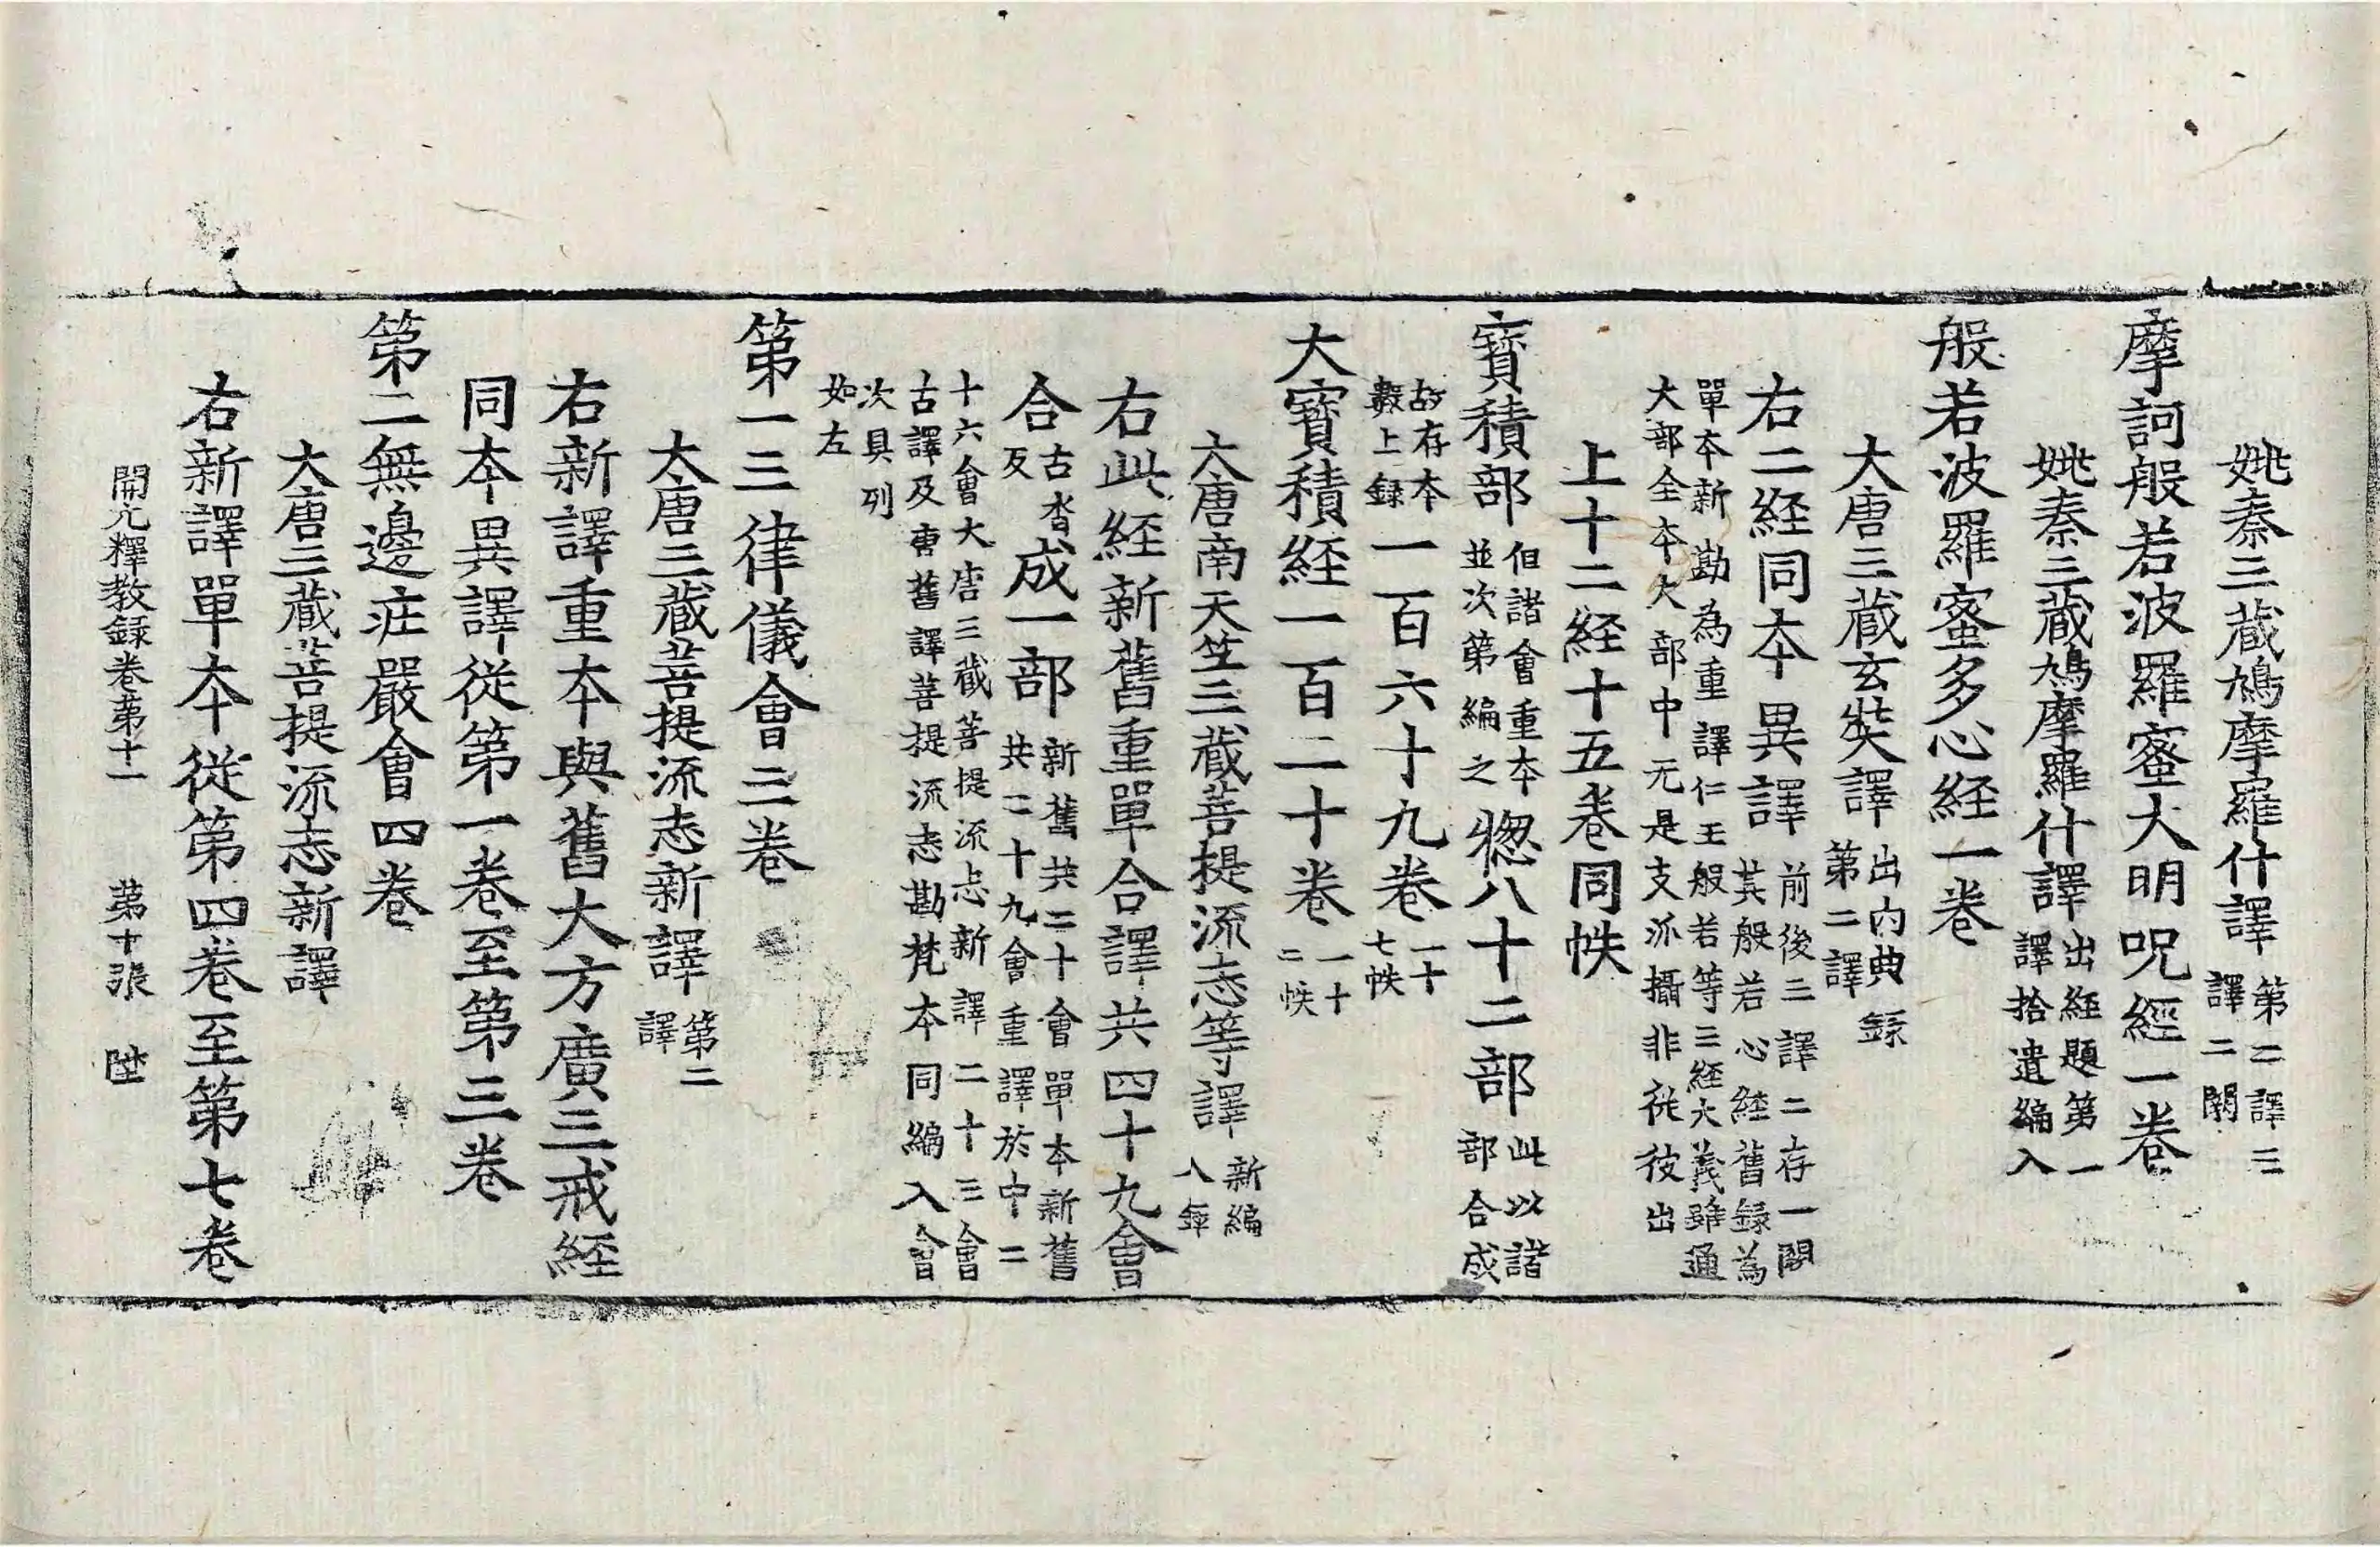 姚秦三藏鳩摩羅什譯第二譯三譯二闕
摩訶般若波羅蜜大明呪經一卷
姚秦三藏鳩摩羅什譯出經題第一譯拾遺編入
般若波羅蜜多心経一卷
大唐三藏玄奘譯出内典録第二譯
右二経同本異譯前後三譯二存一闕其般若心経舊録為
單本新勘為重譯仁王般若等三経大義雖通大部全本大部中无是支派攝非従彼出
上十二経十五卷同帙
寶積部但諸會重本並次第編之惣八十二部此以諸部合成
故存本數上録一百六十九卷一十七帙
大寶積経一百二十卷一十二帙
大唐南天竺三藏菩提流志等譯新編入録
右此経新舊重單合譯共四十九會
合古沓反成一部新舊共二十會單本新舊共二十九會重譯於中二
十六會大唐三藏菩提流志新譯二十三會古譯及唐舊譯菩提流志勘梵本同編入會
次具列如左
第一三律儀會三卷
大唐三藏菩提流志新譯第二譯
右新譯重本與舊大方廣三戒経
同本異譯從第一卷至第三卷
第二無邊庄嚴會四卷
大唐三藏菩提流志新譯
右新譯單本従第四卷至第七卷
開元釋教録卷第十一 第十張 陞